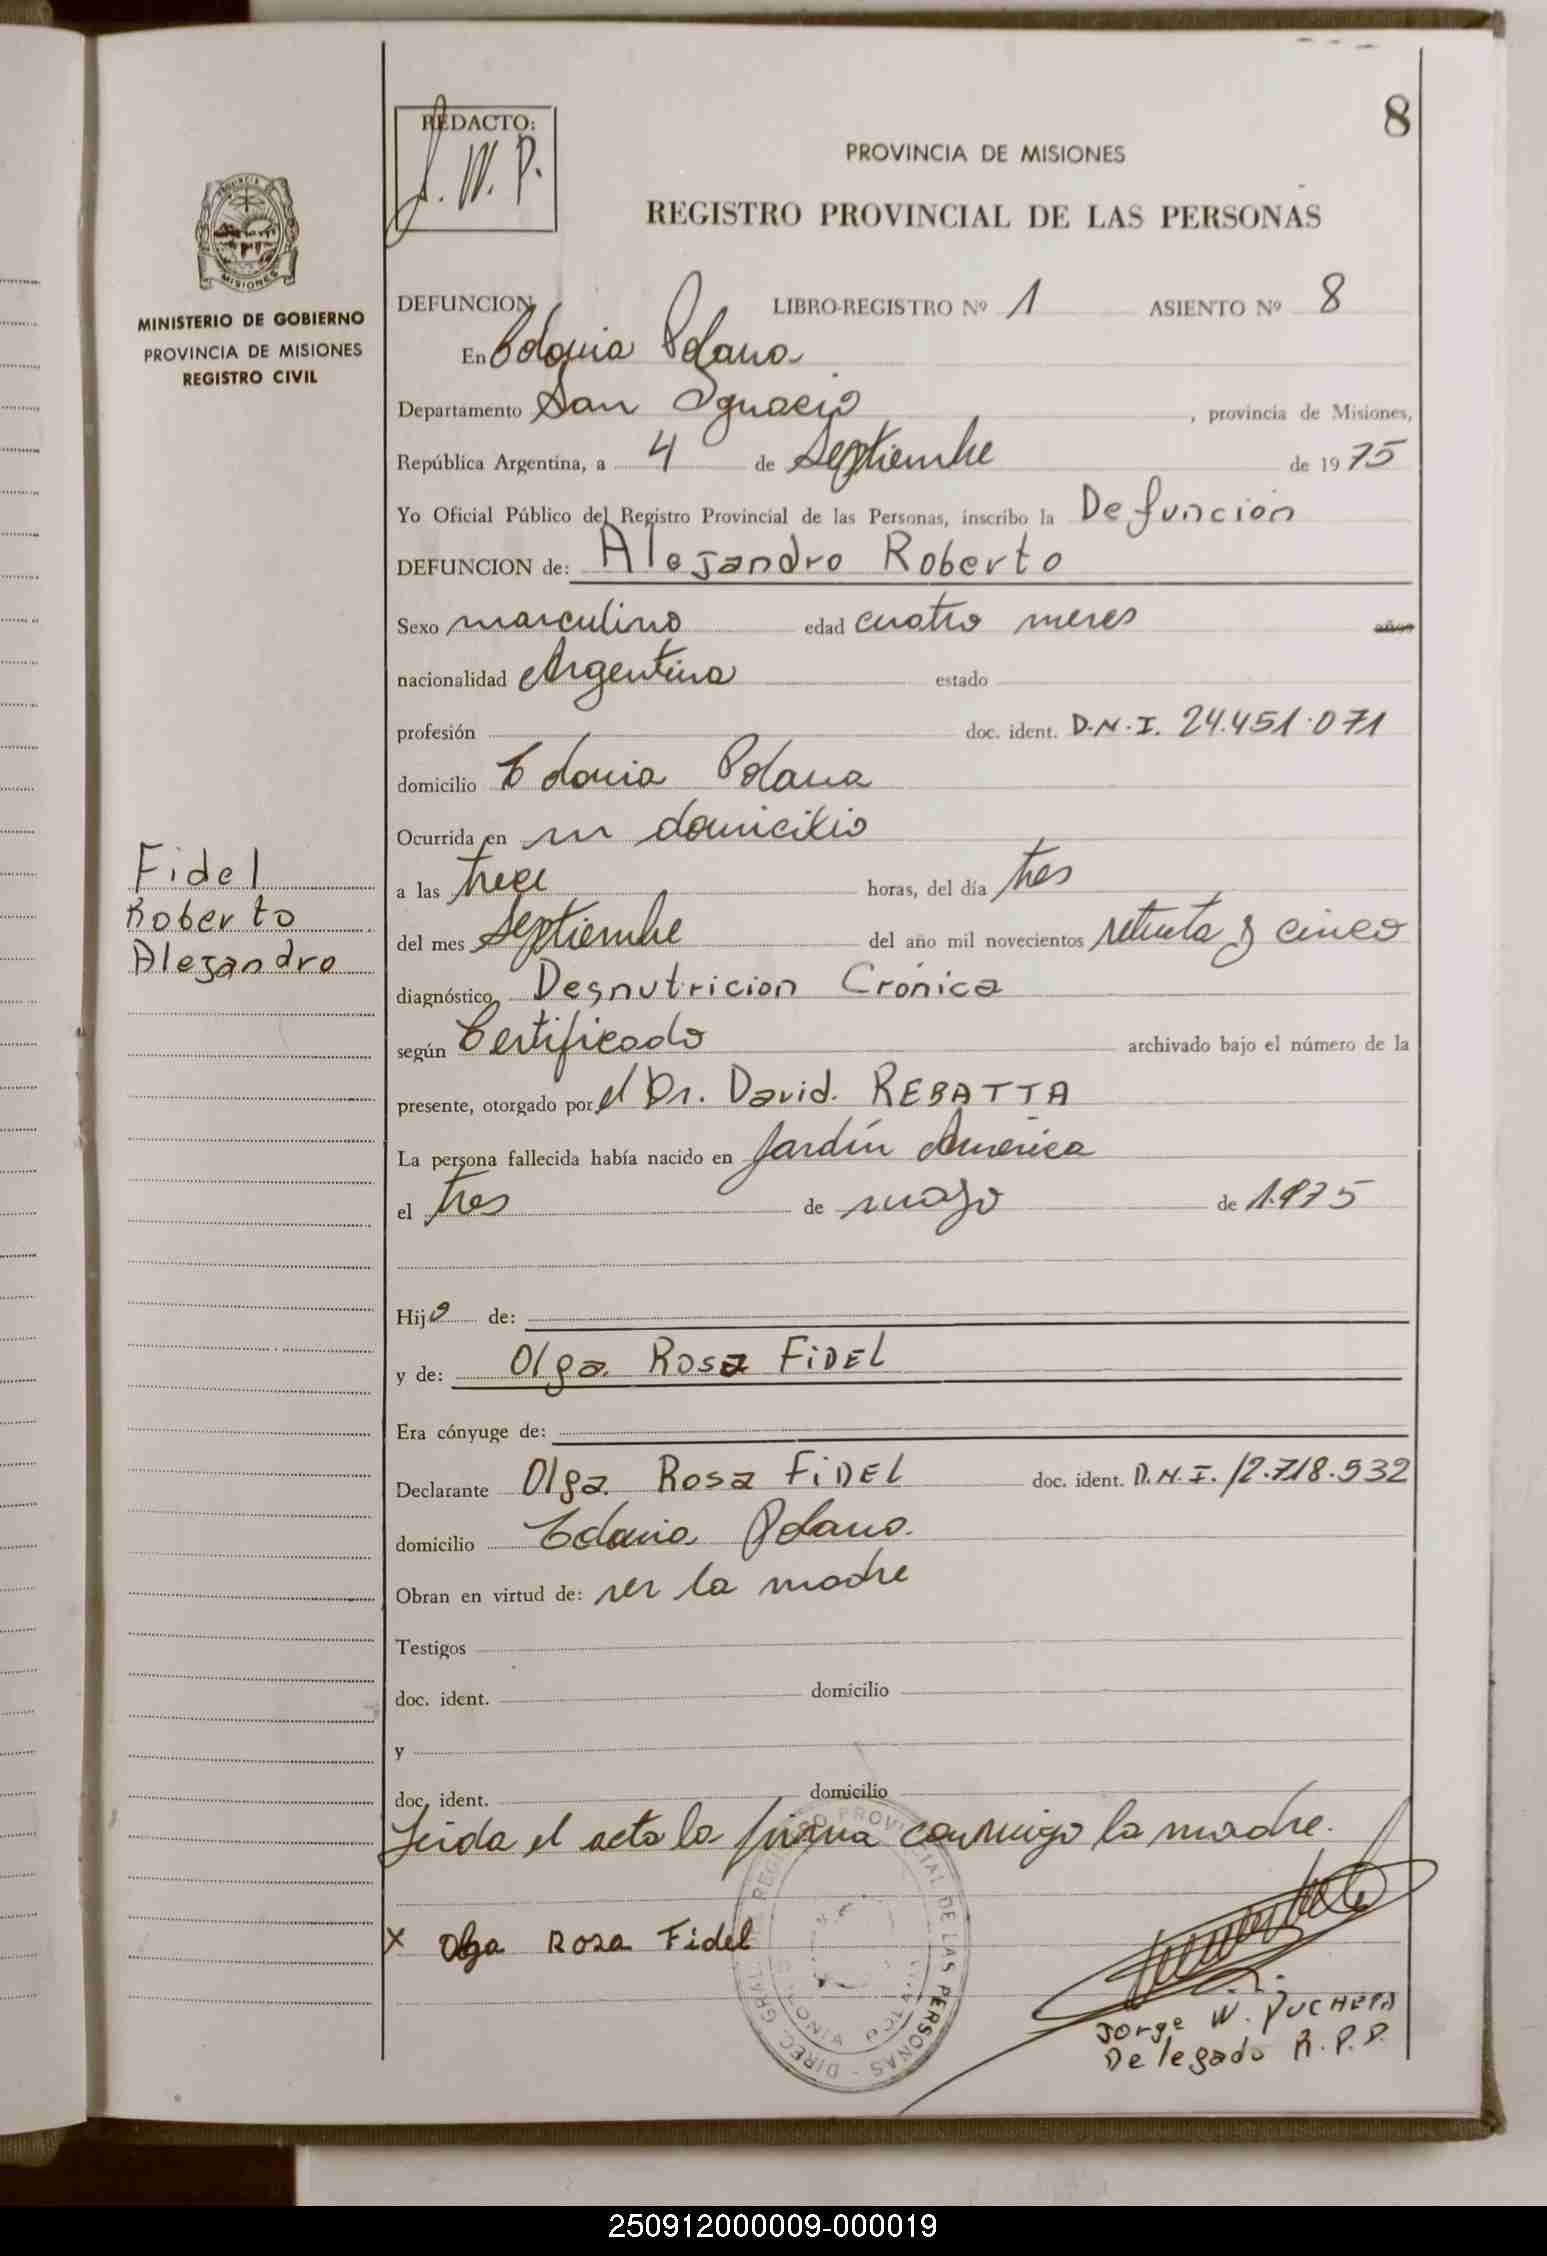 8
REDACTO:
J. W. P.
PROVINCIA DE MISIONES
REGISTRO PROVINCIAL DE LAS PERSONAS
PROVINCIA DE
MISIONES
MINISTERIO DE GOBIERNO
PROVINCIA DE MISIONES
REGISTRO CIVIL
DEFUNCION LIBRO-REGISTRO Nº 1 ASIENTO Nº 8
En Colonia Polana
Departamento San Ignacio, provincia de Misiones,
República Argentina, a 4 de Septiembre de 1975
Yo Oficial Público del Registro Provincial de las Personas, inscribo la Defunción
DEFUNCION de: Alejandro Roberto
Sexo masculino edad cuatro meses años
nacionalidad Argentina estado
profesión doc. ident. D.N.I. 24.451.071
domicilio Colonia Polana
Ocurrida en su domicilio
Fidel
Roberto
Alejandro
a las trece horas, del día tres
del mes septiembre del año mil novecientos setenta y cinco
diagnóstico Desnutricion Crónica
según Certificado archivado bajo el número de la
presente, otorgado por el Dr. David. REBATTA
La persona fallecida había nacido en Jardín América
el tres de mayo de 1.975
Hijo de:
y de: Olga Rosa FIDEL
Era cónyuge de:
Declarante Olga Rosa FIDEL doc. ident. D.N.I. 12.718.532
domicilio Colonia Polana.
Obran en virtud de: ser la madre
Testigos
doc. ident. domicilio
y
doc. ident. domicilio
Leida el acta la firma conmigo la madre.
X Olga Rosa Fidel
DIREC. GRAL. DEL REGISTRO PROVINCIAL DE LAS PERSONAS
COLONIA POLANA
Jorge W. PUCHETA
Delegado R.P.P.
250912000009-000019